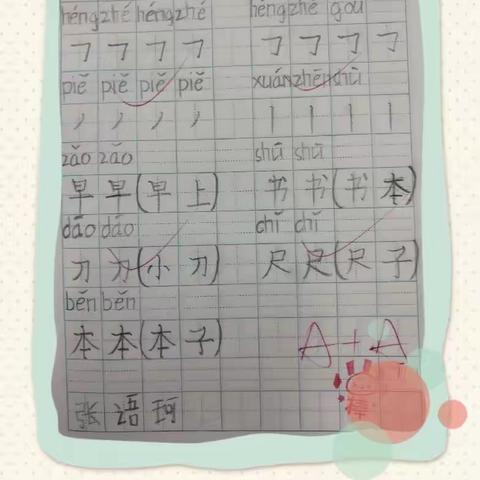 héngzhé héngzhé héngzhé gōu
㇕ ㇕ ㇕ ㇕ ㇆ ㇆ ㇆ ㇆
piě piě piě piě xuánzhēnshù
丿 丿 丿 丿 丨 丨 丨 丨
zǎo zǎo shū shū
早 早(早 上) 书 书(书 本)
dāo dāo chǐ chǐ
刀 刀(小 刀) 尺 尺(尺 子)
běn běn
本 本(本 子) A+A
张 语 珂 棒